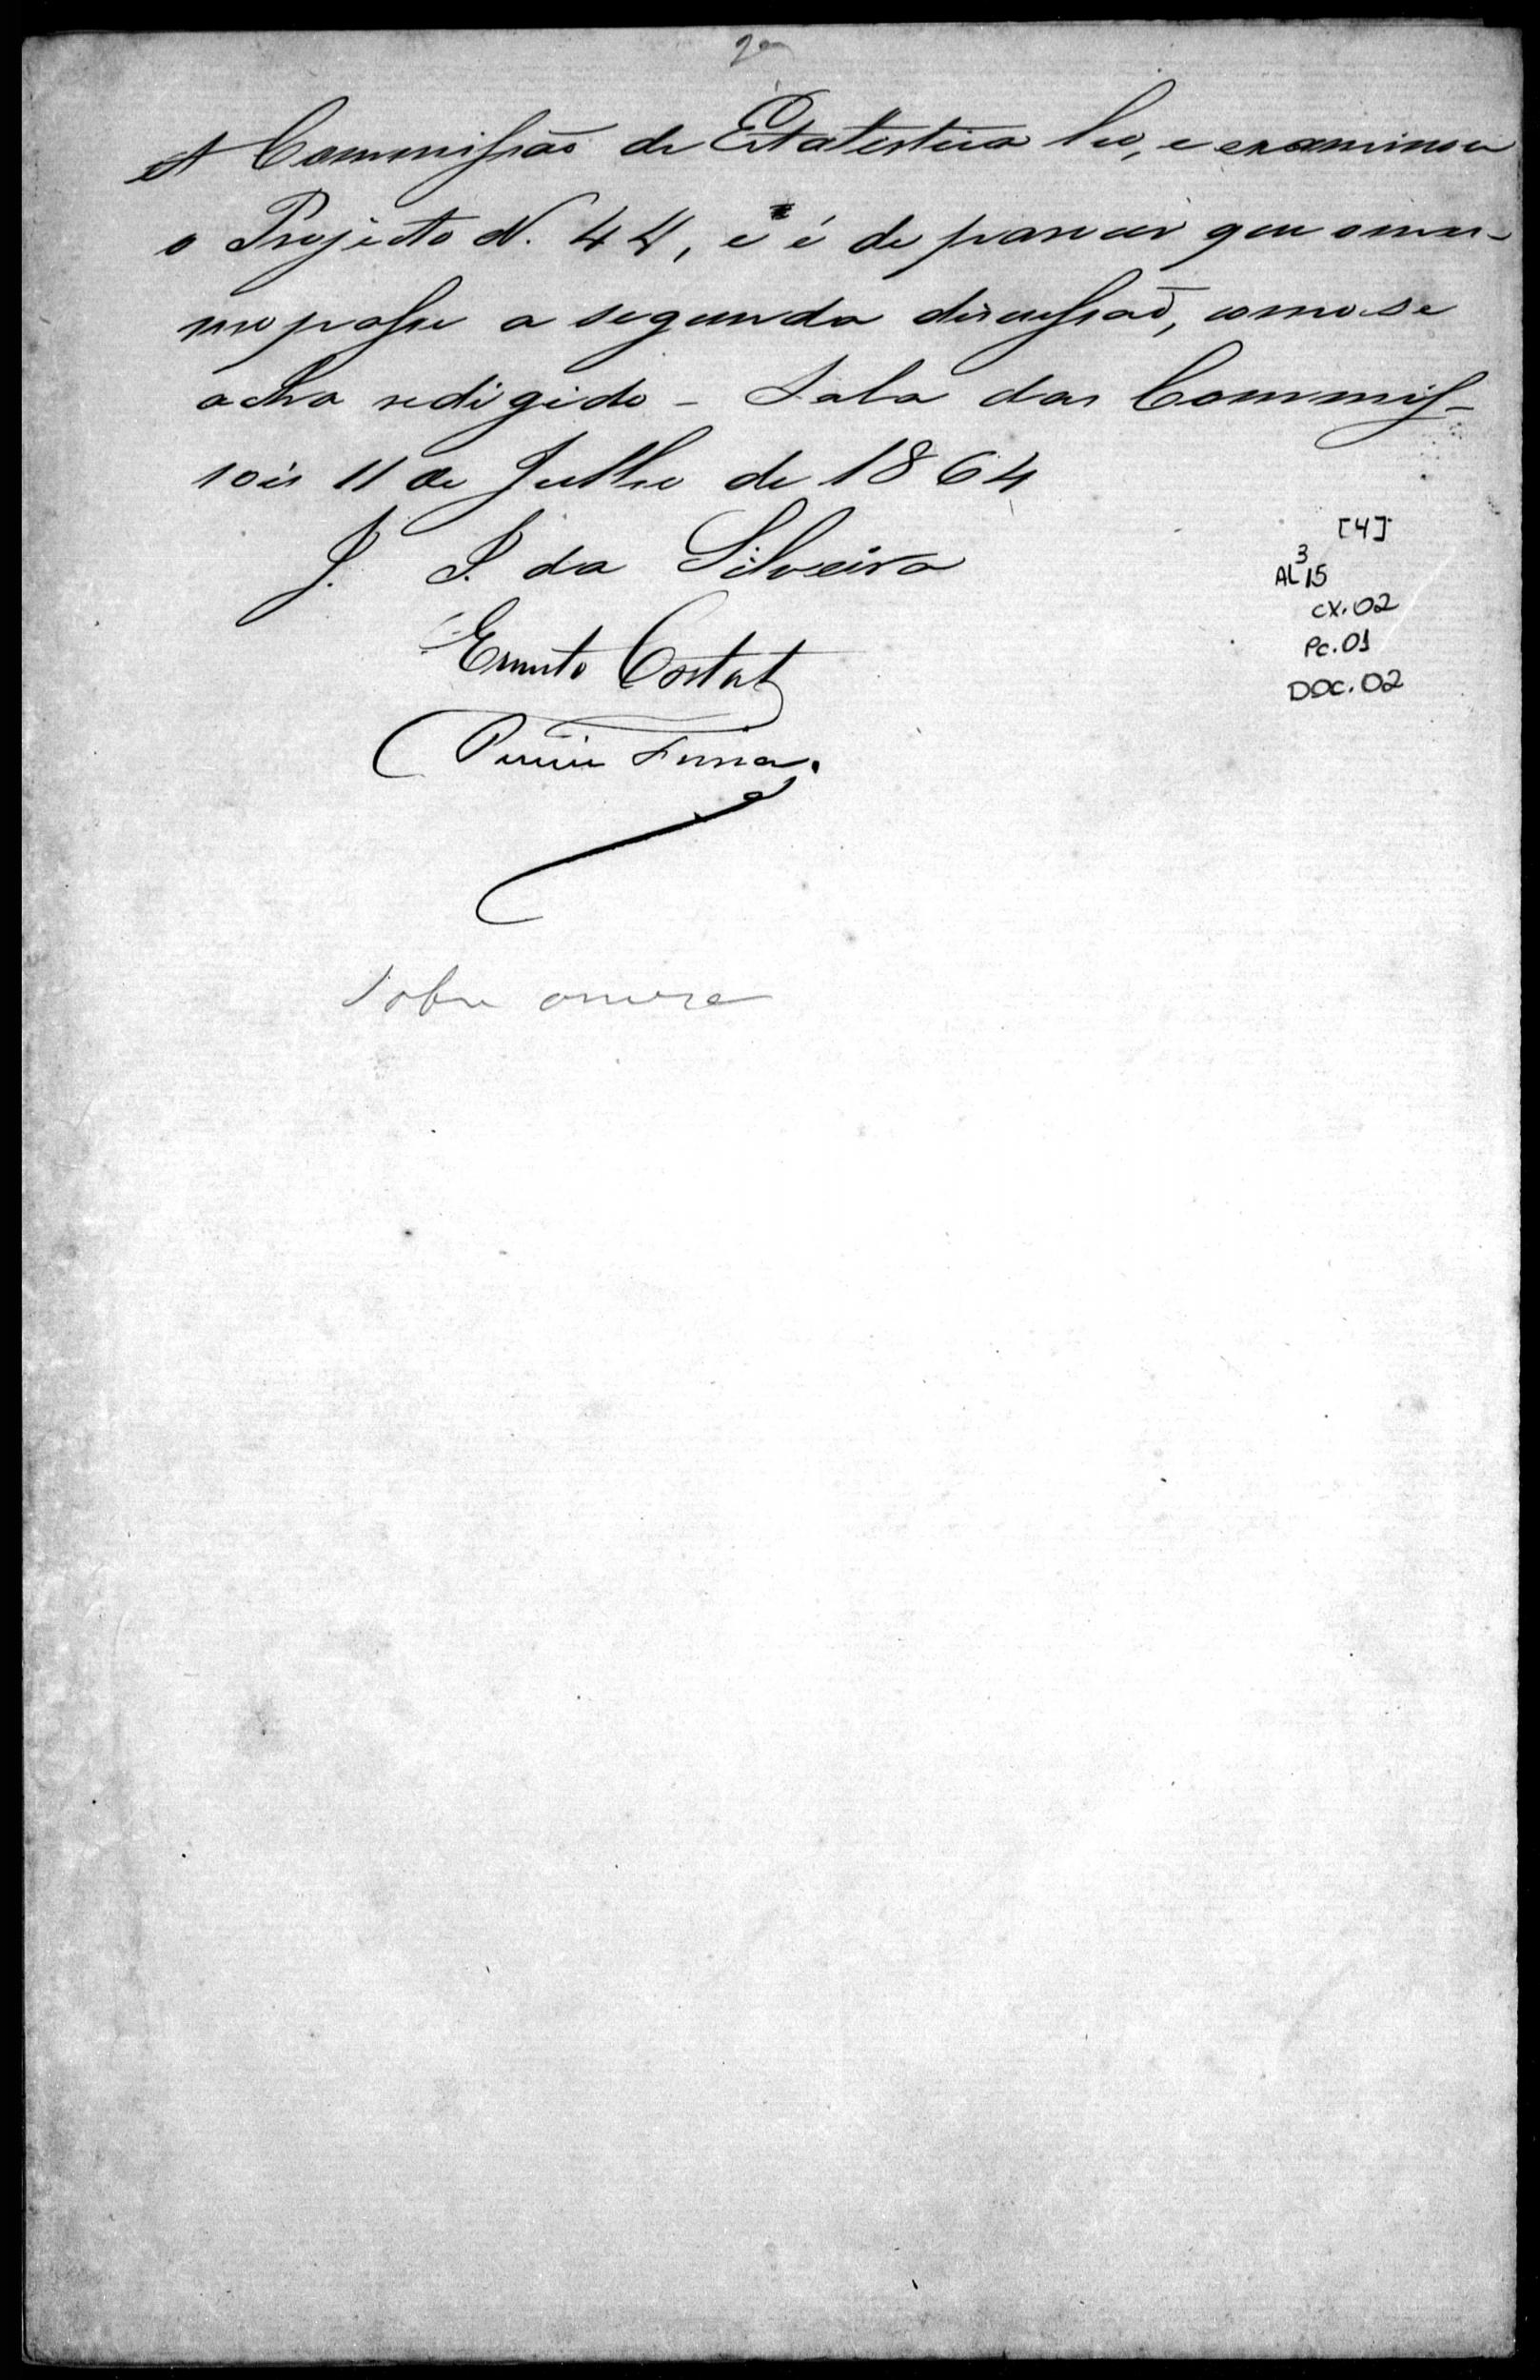 A Commissão de Estatestica leo, e examinou
o Projecto N. 44, e é de parecer que o mes-
mo passe a segunda discussaõ, como se
acha redigido - Sala das Commis-
soẽs 11 de Julho de 1864
J. P. da Silveira
Ernesto Costat
[4]
AL 3 15
CX. 02
Pc. 01
DOC. 02
Sobre